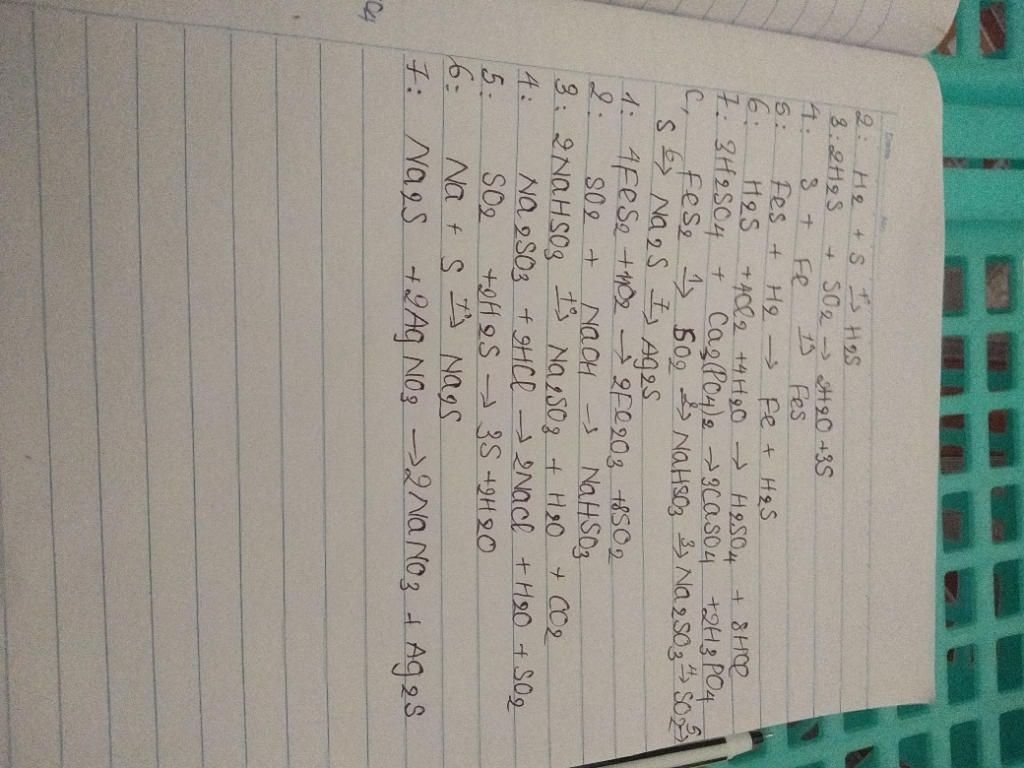 2: H2 + S t°→ H2S
3: 2H2S + SO2 → 2H2O + 3S
4: S + Fe t°→ FeS
5: FeS + H2 → Fe + H2S
6: H2S + 4Cl2 + 4H2O → H2SO4 + 8HCl
7: 3H2SO4 + Ca3(PO4)2 → 3CaSO4 + 2H3PO4
C, FeS2 1→ SO2 2→ NaHSO3 3→ Na2SO3 4→ SO2 5→
S 6→ Na2S 7→ Ag2S
1: 4FeS2 + 11O2 → 2Fe2O3 + 8SO2
2: SO2 + NaOH → NaHSO3
3: 2NaHSO3 t°→ Na2SO3 + H2O + CO2
4: Na2SO3 + 2HCl → 2NaCl + H2O + SO2
5: SO2 + 2H2S → 3S + 2H2O
6: Na + S t°→ Na2S
7: Na2S + 2AgNO3 → 2NaNO3 + Ag2S